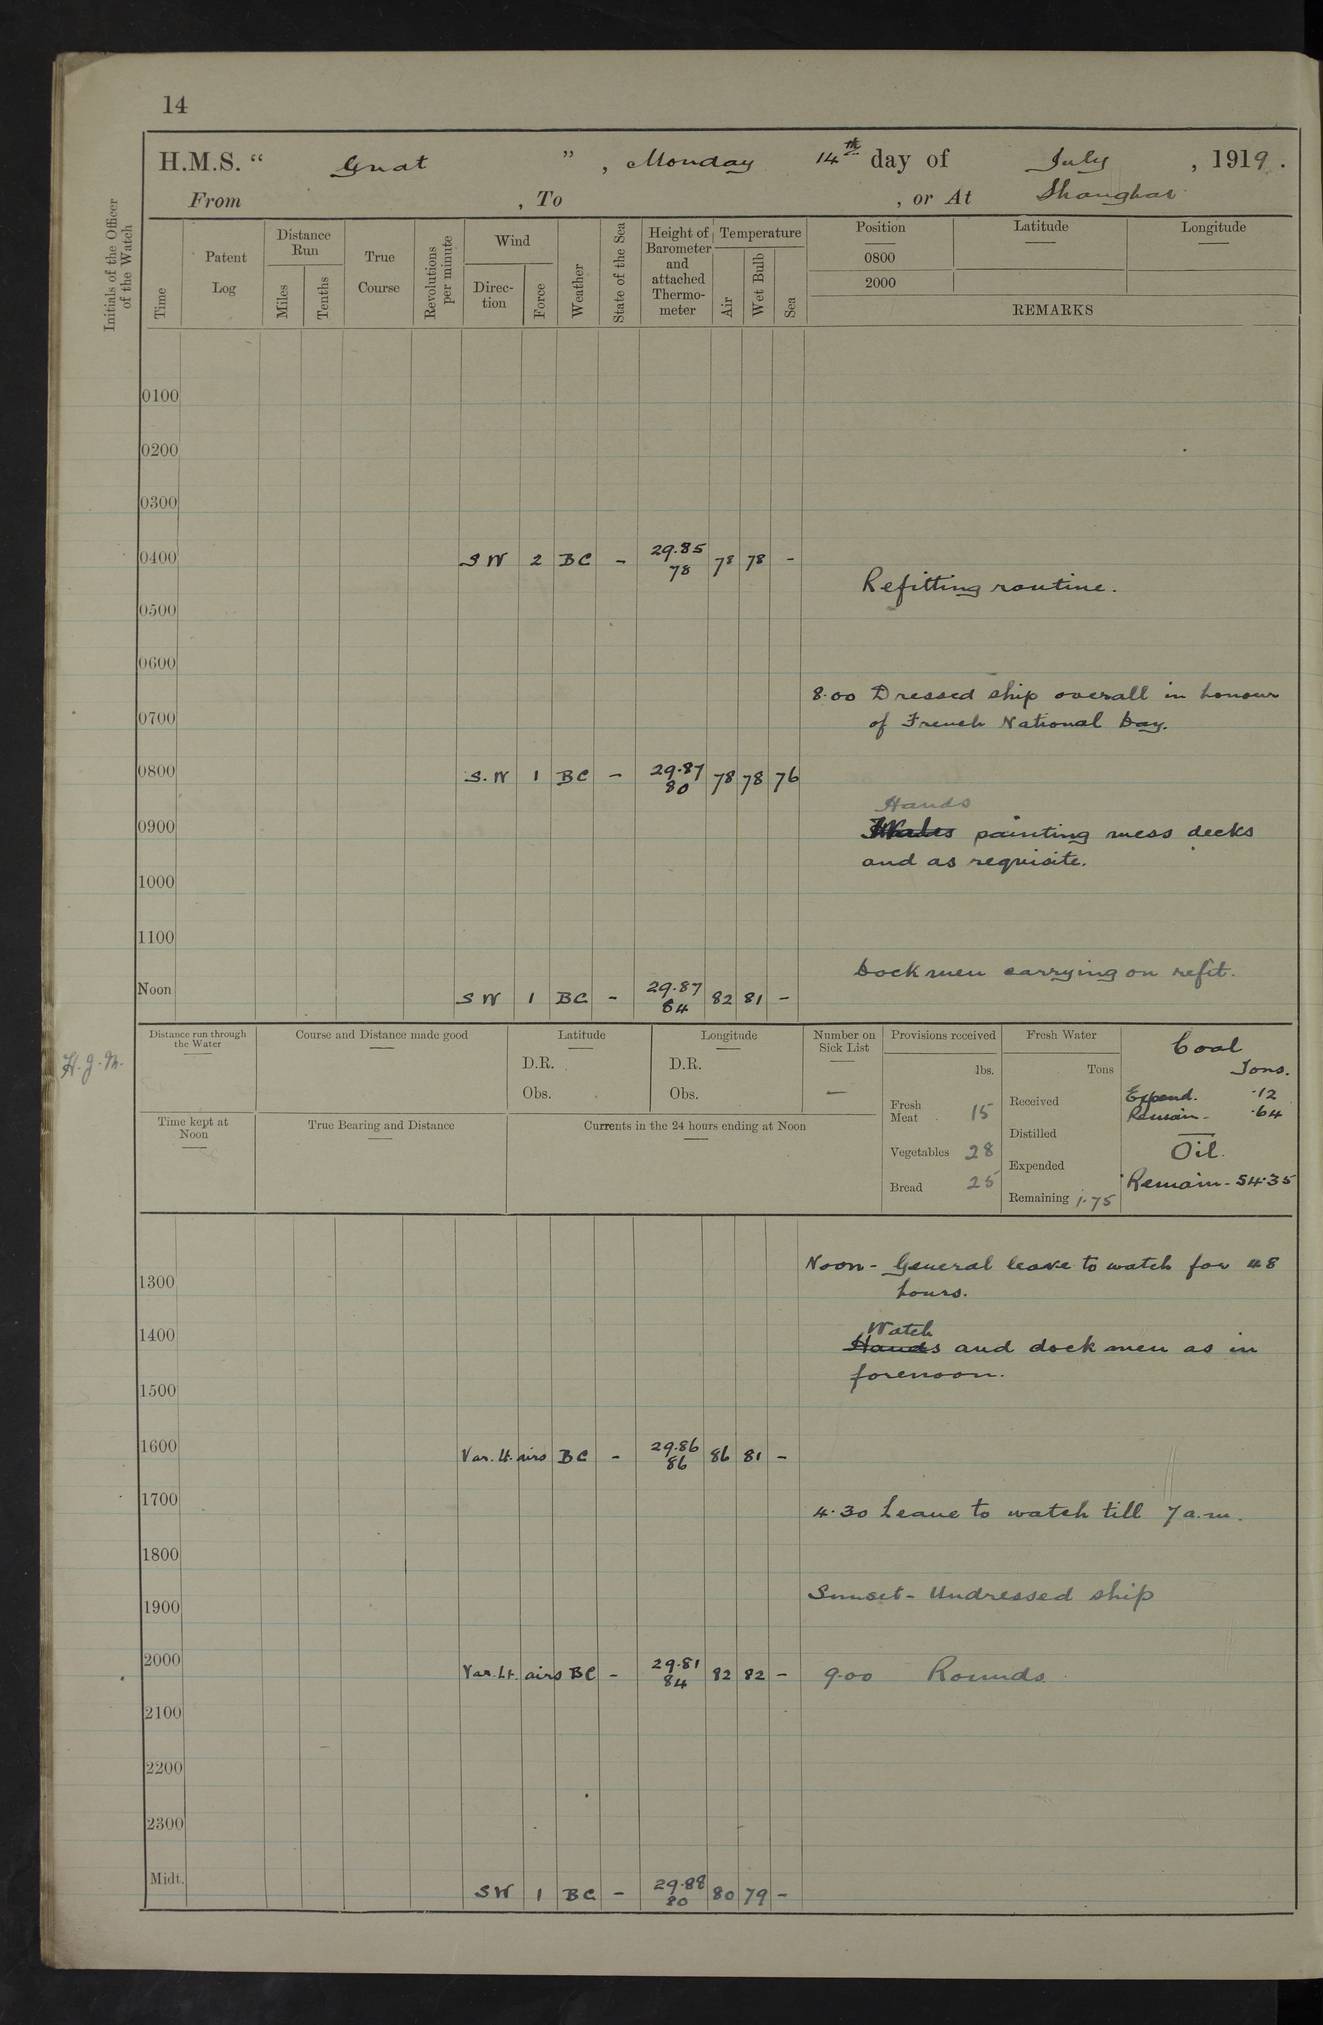 14
H.M.S. “ Gnat ” , Monday 14th day of July , 1919 .
From , To , or At Shanghai
Initials of the Officer of the Watch
Time
Patent Log
Distance Run
Miles
Tenths
True Course
Revolutions per minute
Wind
Direction
Force
Weather
State of the Sea
Height of Barometer and attached Thermometer
Temperature
Air
Wet Bulb
Sea
Position
Latitude
Longitude
0800
2000
REMARKS
0100
0200
0300
0400 SW 2 BC - 29.85 78 78 78 -
Refitting routine.
0500
0600
8.00 Dressed ship overall in honour
0700
of French National Day.
0800 S.W 1 BC - 29.87 80 78 78 76
Hands
0900
painting mess decks
and as requisite.
1000
1100
Dockmen carrying on refit.
Noon SW 1 BC - 29.87 84 82 81 -
H.J.M.
Distance run through the Water
Course and Distance made good
Latitude
D.R.
Obs.
Longitude
D.R.
Obs.
Number on Sick List
—
Provisions received
lbs.
Fresh Meat 15
Vegetables 28
Bread 25
Fresh Water
Tons
Received
Distilled
Expended
Remaining 1.75
Coal
Tons.
Expend. .12
Remain - .64
Oil.
Remain - 54.35
Time kept at Noon
True Bearing and Distance
Currents in the 24 hours ending at Noon
Noon - General leave to watch for 48
1300
hours.
1400
Watch
Hands and dockmen as in
forenoon.
1500
1600 Var. Lt. airs BC - 29.86 86 86 81 -
1700
4.30 Leave to watch till 7 a.m.
1800
Sunset - Undressed ship
1900
2000 Var. Lt. airs BC - 29.81 84 82 82 -
9.00 Rounds.
2100
2200
2300
Midt. SW 1 BC - 29.88 80 80 79 -